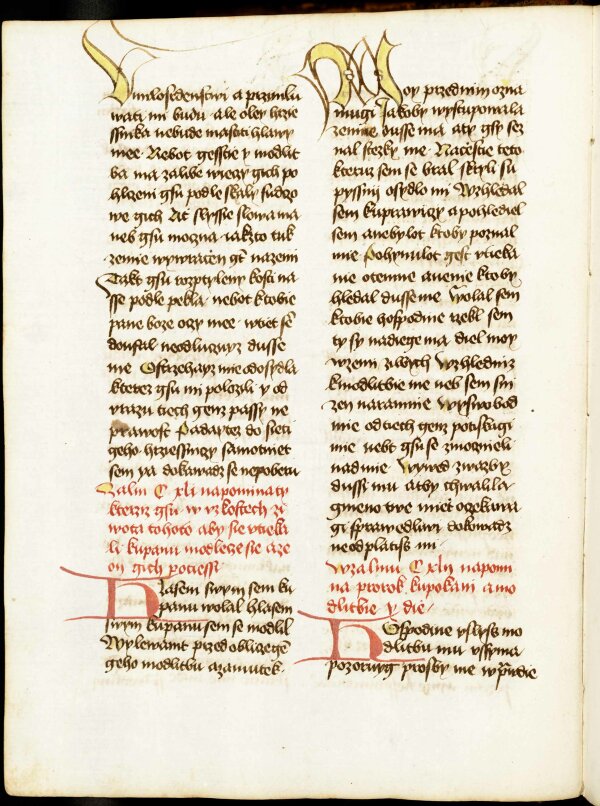 V milosrdenstwi a przimlu
wati mi budu ale oley hrzie
ssnika nebude mastiti hlawy
mee Nebot gesstie y modlit
ba ma zalibe wieczy gich po
hlzeni gsu podle skaly sudczo
we gich At slyssie slowa ma
neb gsu mozna iakzto tuk
zemie wywracen gt na zemi
Takt gsu rozptyleny kosti na
sse podle pekla nebot k tobie
pane boze oczy mee w tiet sem
doufal neodluczuyz dusse
me Ostrziehay mie od osydla
kterez gsu mi polozili y od
vrazu tiech genz passy ne
prawost Padayte do sieti
geho hrziessniczy samotniet
sem ya dokawadz se nepoberu
Zalm C xli napomina ty
kterziz gsu w vzkostech zi
wota tohoto aby sie vtieka
li ku panu modlece sie aze
on gich potiessi
Hlasem swym sem ku
panu wolal hlasem
swym ku panu sem se modlil
Wylewam przed obliczegem
geho modlitbu a zamutek
Moy przed nim ozna
mugi Jakoby wystupowala
zemie dusse ma a ty gsy sez
nal stezky me Na cestie teto
kteruz sem se bral skryli su
pyssni osydlo mi Wzhledal
sem ku prawiczy a pohlediel
sem a nebyl ot kto by poznal
mie Pohynulot gest vtieka
nie ote mne a nenie kto by
hledal dusse me Wolal sem
k tobie hospodine rzekl sem
ty sy nadiege ma diel moy
w zemi ziwych Wzhledniz
k modlitbie me neb sem sni
zen na ramnie Wyswobod
mie od tiech genz protiwugi
mie nebt gsu se zmocznili
nade mnu Wywed z wazby
dussi mu aby chwalila
gmeno twe miet oczekawa
gi sprawedliwi dokowadz
neodplatiss mi
W zalmu C xlii napomi
na prorok ku pokani a mo
dlitbie y die
Hospodine vslyss mo
dlitbu mu vssyma
pozoruy prosby me w prawdie